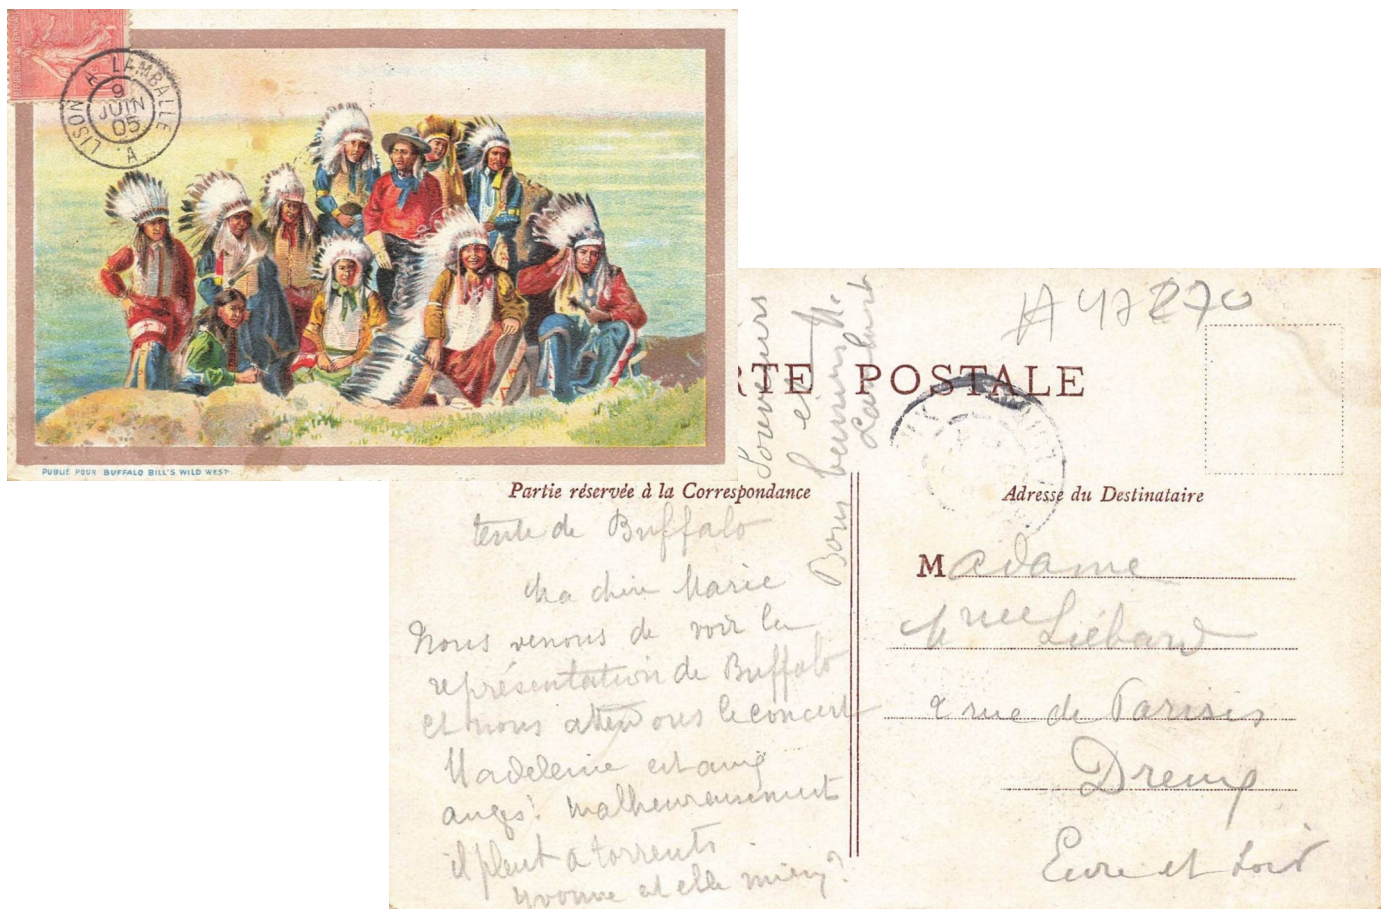 LISON A LAMBALLE
9
JUIN
05
A
PUBLIÉ POUR BUFFALO BILL'S WILD WEST
A 47270
RTE POSTALE
Partie réservée à la Correspondance
Adresse du Destinataire
tente de Buffalo
Ma chère Marie
Nous venons de voir la
représentation de Buffalo
et nous attendons le concert
Madeleine est aux
anges! malheureusement
il pleut a torrents
Yvonne est elle mieux?
Souvenirs
et
Bons baisers M.
Madame
Mme Liébard
2 rue de Parisis
Dreux
Eure et Loir